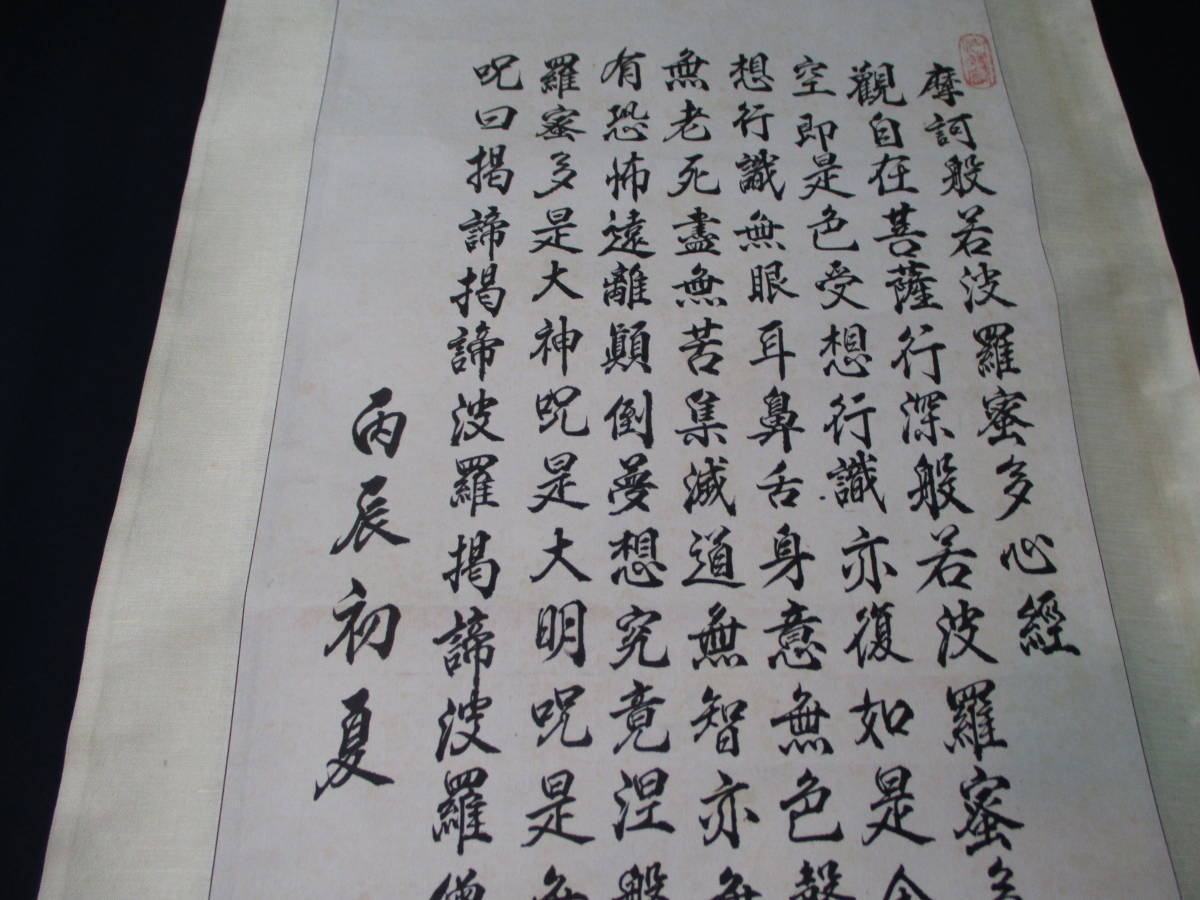 摩訶般若波羅蜜多心經
觀自在菩薩行深般若波羅蜜多
空即是色受想行識亦復如是舍
想行識無眼耳鼻舌身意無色聲
無老死盡無苦集滅道無智亦無
有恐怖遠離顛倒夢想究竟涅般
羅蜜多是大神呪是大明呪是無
呪曰揭諦揭諦波羅揭諦波羅僧
丙辰初夏